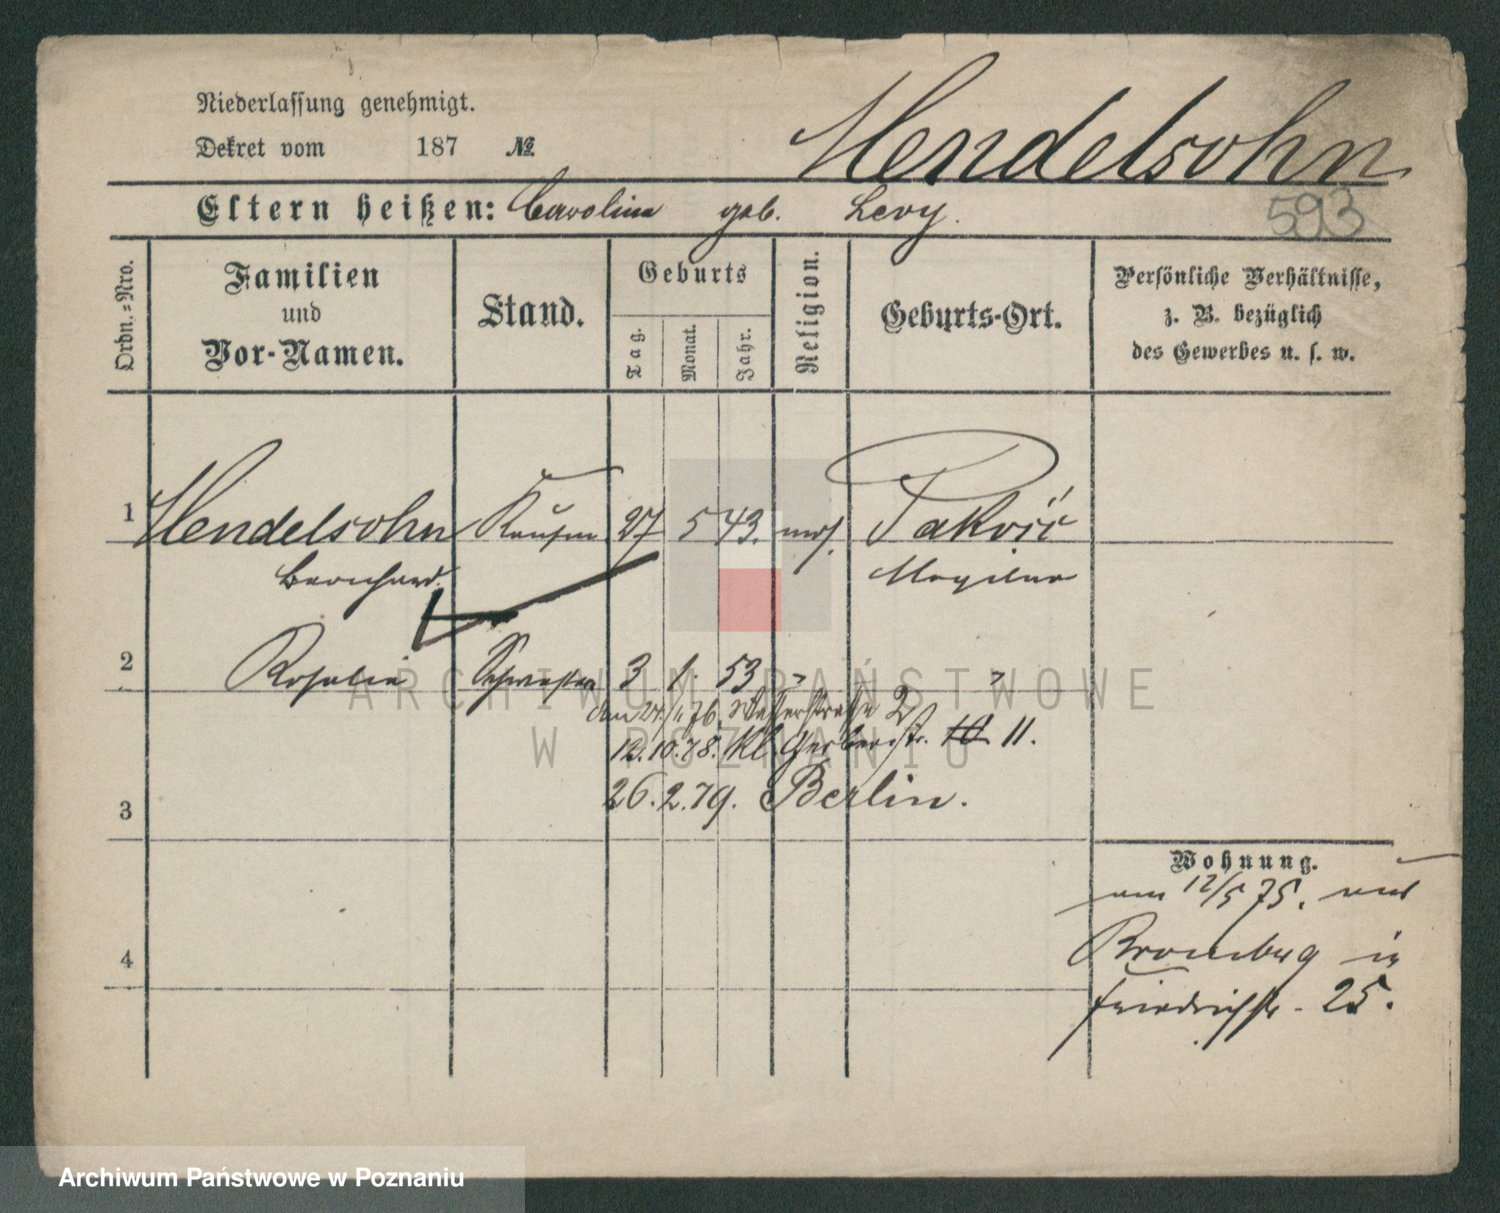 Niederlassung genehmigt.
Dekret vom 187 №
Mendelsohn
Eltern heißen: Caroline geb. Levy.
593
Ordn.-Nro.
Familien und Vor-Namen.
Stand.
Geburts
Tag.
Monat.
Jahr.
Religion.
Geburts-Ort.
Persönliche Verhältnisse,
z. B. bezüglich
des Gewerbes u. s. w.
1 Mendelsohn Kaufm 27 5 43. mos. Pakość
Bernhard. Mogilno
2 Rosalie Schwester 3 1. 53 " "
den 24/11 76. Wasserstraße 2
12.10.78. Kl. Gerberstr. 10 11.
26.2.79. Berlin.
3
Wohnung.
am 12/5 75. aus
4
Bromberg in
Friedrichstr. 25.
ARCHIWUM PAŃSTWOWE
W POZNANIU
Archiwum Państwowe w Poznaniu